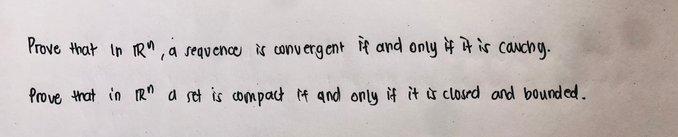 Prove that in ℝⁿ, a sequence is convergent if and only if it is cauchy.
Prove that in ℝⁿ a set is compact if and only if it is closed and bounded.